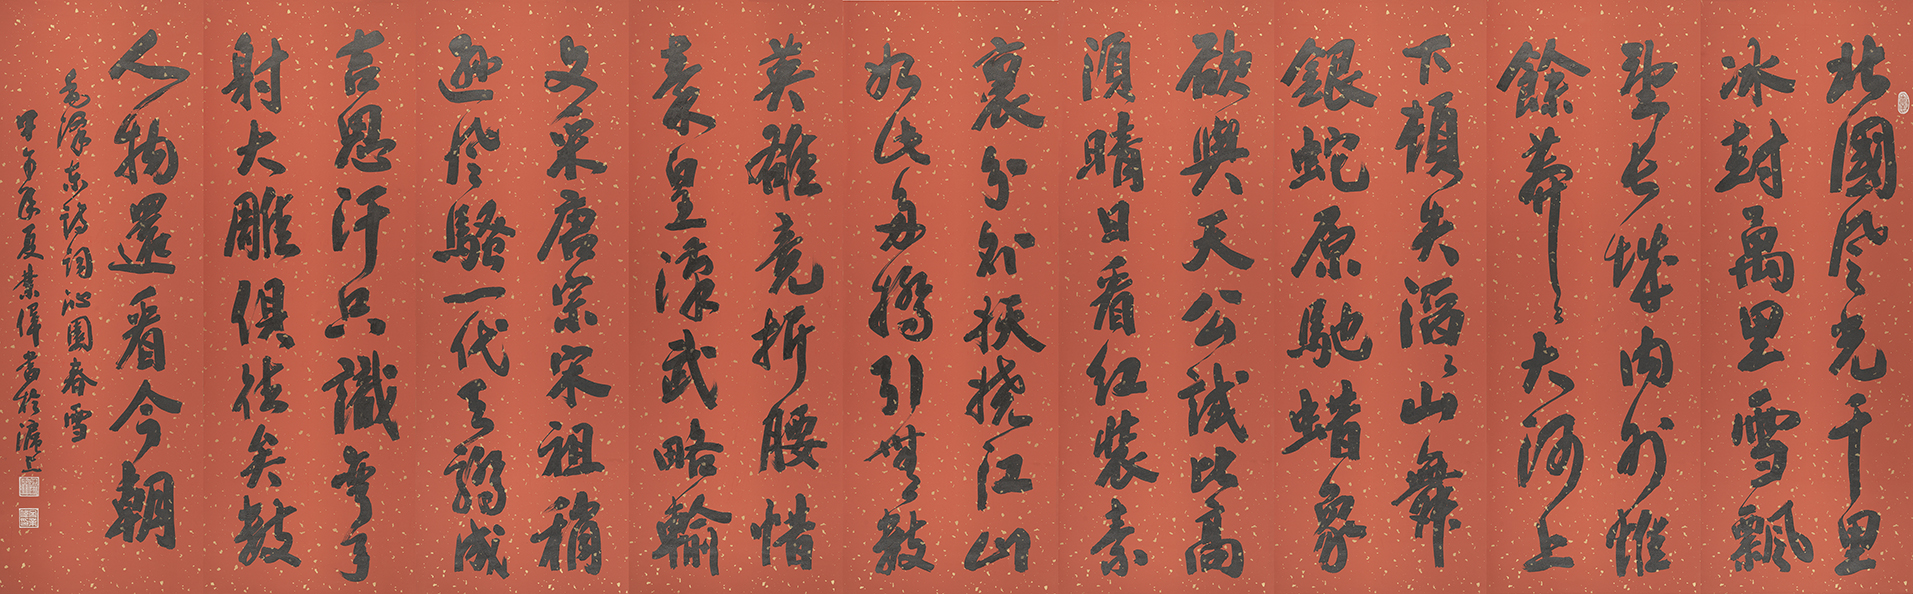 北國风光千里
冰封萬里雪飄
望长城内外惟
餘莽〻大河上
下頓失滔〻山舞
銀蛇原馳蜡象
欲與天公試比高
須晴日看红裝素
裹分外妖娆江山
如此多娇引無数
英雄竞折腰惜
秦皇漢武略輸
文采唐宗宋祖稍
遜风騷一代天骄成
吉思汗只識弯弓
射大雕俱往矣数
人物還看今朝
毛澤东詩詞沁園春雪
甲午年夏業偉書於滬上